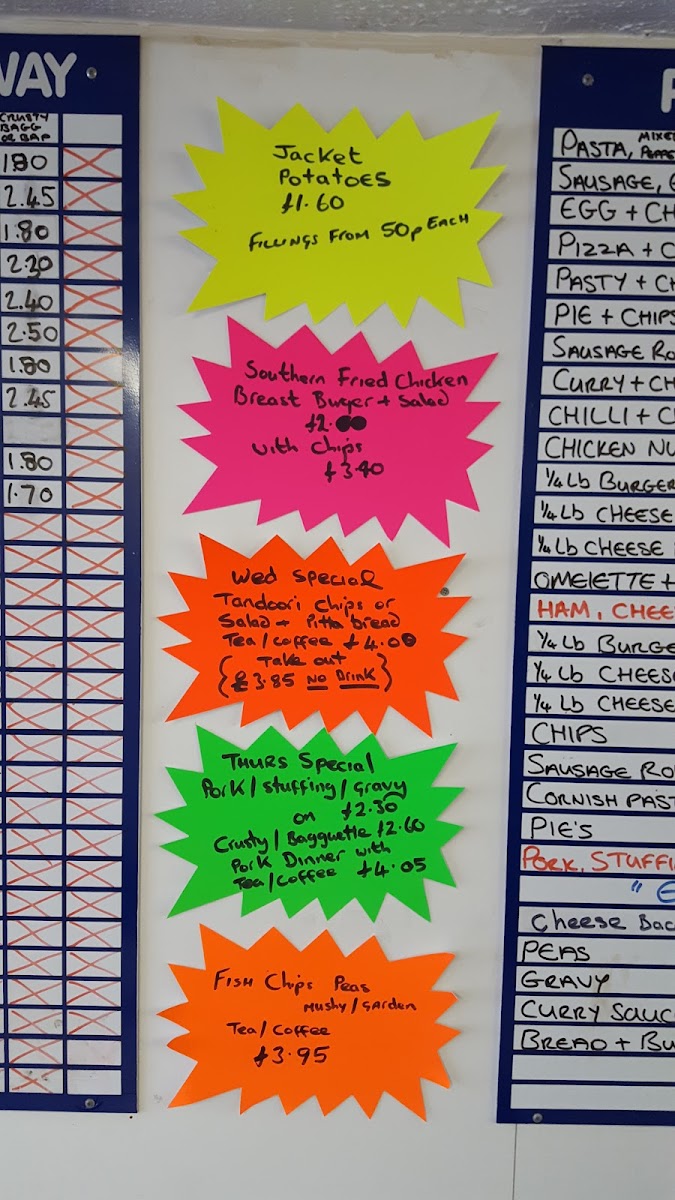 WAY
CRUSTY
BAGG
OR BAP
1.80
2.45
1.80
2.30
2.40
2.50
1.80
2.45
1.80
1.70
Jacket
Potatoes
£1.60
Fillings From 50p Each
Southern Fried Chicken
Breast Burger + Salad
£2.
with Chips
£3.40
Wed Special
Tandoori Chips or
Salad + Pitta bread
Tea/coffee £4.00
(Take out
£3.85 No Drink)
Thurs Special
Pork/stuffing/gravy
on £2.30
Crusty/Bagguette £2.60
Pork Dinner with
Tea/Coffee £4.05
Fish Chips Peas
Mushy/Garden
Tea/Coffee
£3.95
PASTA, MIXED
SAUSAGE,
EGG + CH
PIZZA + C
PASTY + CH
PIE + CHIPS
SAUSAGE RO
CURRY + CH
CHILLI + C
CHICKEN NU
1/4 Lb BURGER
1/4 Lb CHEESE
1/4 Lb CHEESE
OMELETTE +
HAM, CHEE
1/4 Lb BURGE
1/4 Lb CHEESE
1/4 Lb CHEESE
CHIPS
SAUSAGE RO
CORNISH PAST
PIE'S
PORK, STUFFI
"
Cheese Bac
PEAS
GRAVY
CURRY SAUC
BREAD + BU